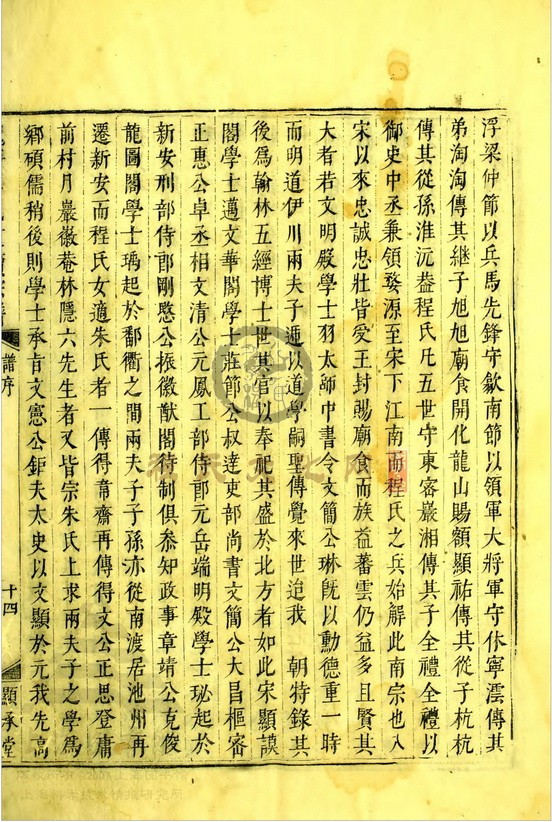 浮梁仲節以兵馬先鋒守歙南節以領軍大將軍守休寧澐傳其
弟淘淘傳其繼子旭旭廟食開化龍山賜額顯祐傳其從子杭杭
傳其從孫淮沅葢程氏凡五世守東密巖湘傳其子全禮全禮以
御史中丞兼領婺源至宋下江南而程氏之兵始解此南宗也入
宋以來忠誠忠壯皆爱王封賜廟食而族益蕃雲仍益多且賢其
大者若文明殿學士羽太師中書令文簡公琳旣以勳德重一時
而明道伊川兩夫子逓以道學嗣聖傳覺來世迨我 朝特錄其
後爲翰林五經博士世其官以奉祀其盛於北方者如此宋顯謨
閣學士邁文華閣學士莊節公叔達吏部尚書文簡公大昌樞密
正惠公卓丞相文清公元鳳工部侍郎元岳端明殿學士珌起於
新安刑部侍郎剛愍公振徽猷閣待制俱叅知政事章靖公克俊
龍圖閣學士瑀起於鄱衢之間兩夫子子孫亦從南渡居池州再
遷新安而程氏女適朱氏者一傳得韋齋再傳得文公正思登庸
前村月巖徽菴林隱六先生者又皆宗朱氏上求兩夫子之學爲
鄉碩儒稍後則學士承旨文憲公鉅夫太史以文顯於元我先高
譜序
十四
顯承堂